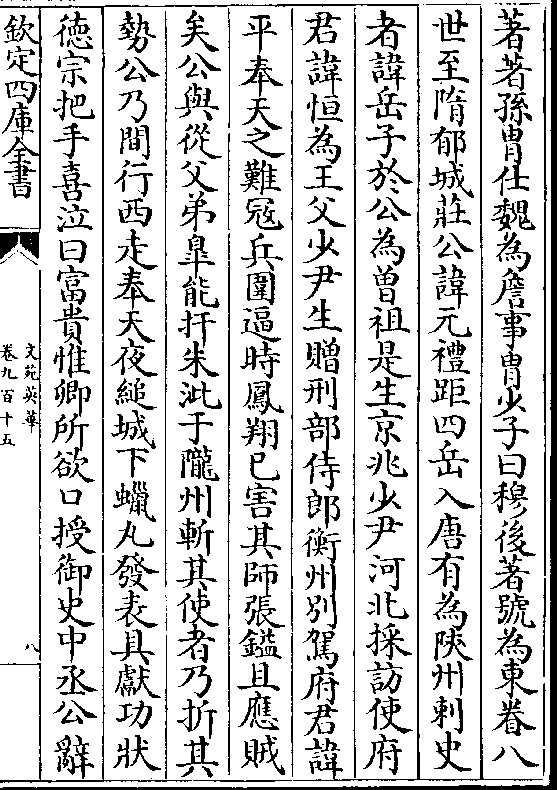 著著孫胄仕魏為詹事胄少子曰穆後著號為東眷八
世至隋郁城莊公諱元禮距四岳入唐有為陝州刺史
者諱岳子於公為曾祖是生京兆少尹河北採訪使府
君諱恒為王父少尹生贈刑部侍郎衡州別駕府君諱
平奉天之難冦兵圍逼時鳳翔已害其師張鎰且應賊
矣公與從父弟皐能扞朱泚于隴州斬其使者乃折其
勢公乃間行西走奉天夜縋城下蠟丸發表具獻功狀
徳宗把手喜泣曰富貴惟卿所欲口授御史中丞公辭
欽定四庫全書
文苑英華
卷九百十五
八